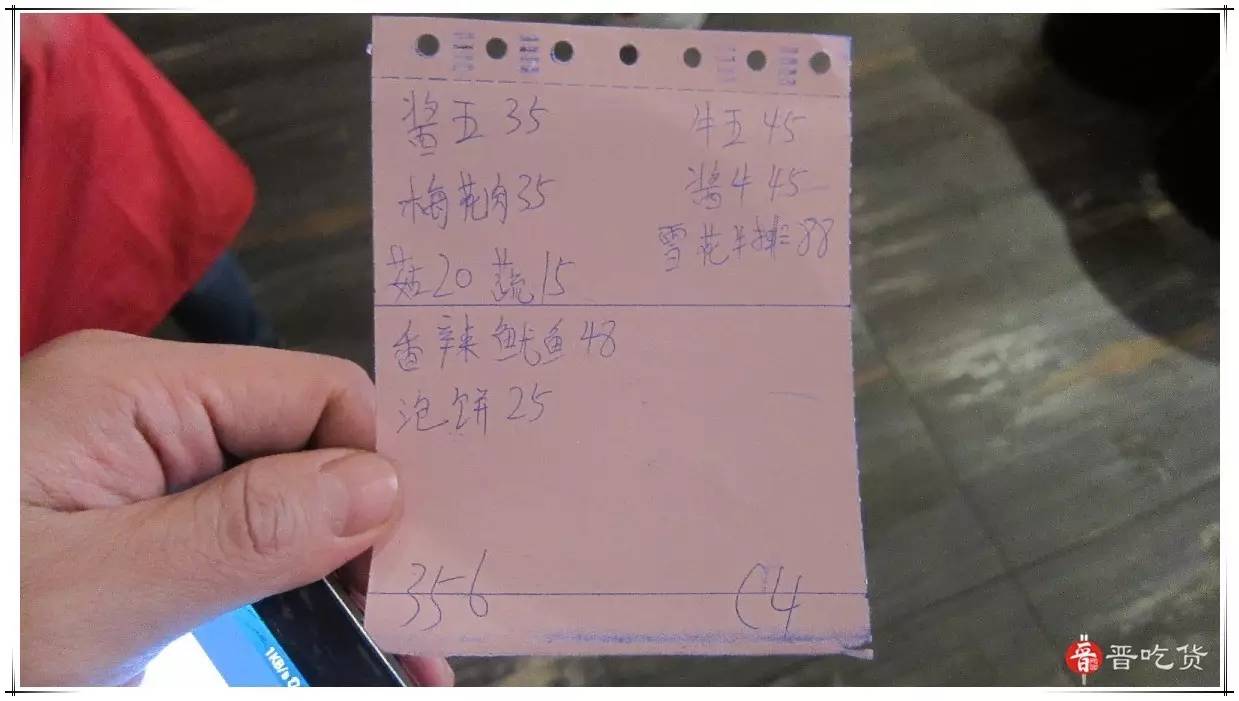 酱五 35
牛五 45
梅花肉 35
酱牛 45
菇20 蔬15
雪花牛排 88
香辣鱿鱼 48
泡饼 25
356
C4
1KB/s
晋吃货